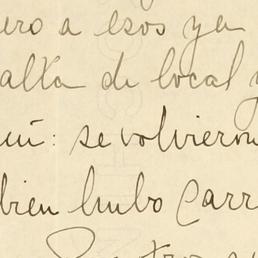 ero a esos ya
alta de local y
se volvieron
bien hubo Carr